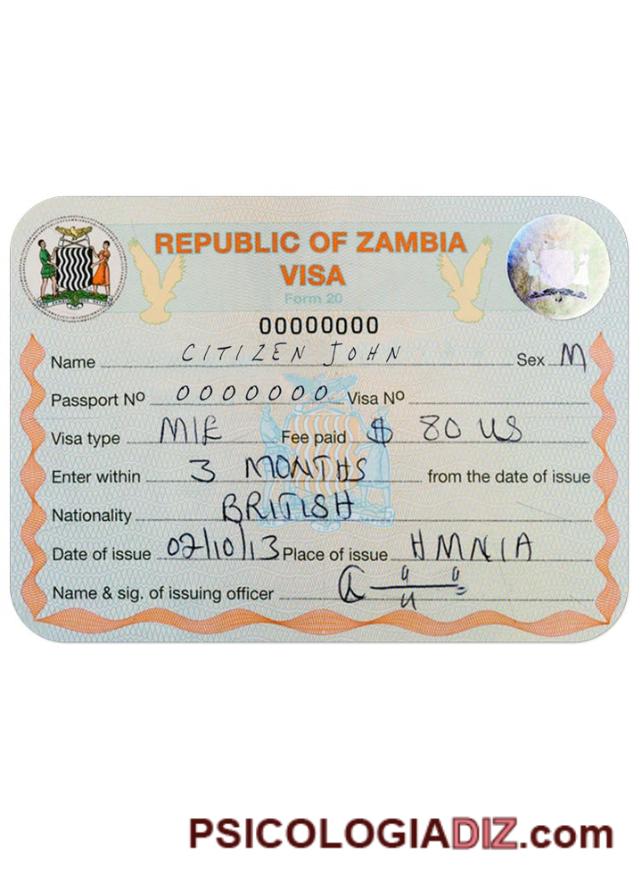 REPUBLIC OF ZAMBIA
VISA
Form 20
00000000
Name CITIZEN JOHN Sex M
Passport Nº 0000000 Visa Nº
Visa type MIE Fee paid $ 80 US
Enter within 3 MONTHS from the date of issue
Nationality BRITISH
Date of issue 02/10/13 Place of issue HMNIA
Name & sig. of issuing officer
PSICOLOGIADIZ.com